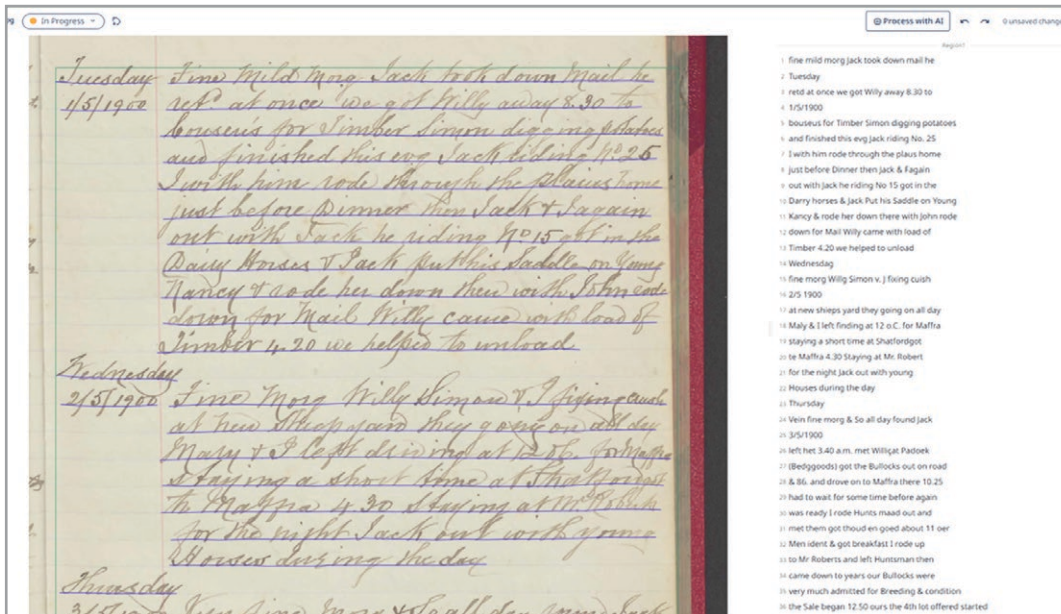 In Progress
Process with AI
0 unsaved change
Region1
Tuesday
1/5/1900
Fine Mild Morg Jack took down Mail he
retd at once we got Willy away 8.30 to
for Timber Simon digging potatoes
and finished this evg Jack riding No 25
I with him rode through the plains home
just before Dinner then Jack & I again
out with Jack he riding No 15 got in the
Dairy Horses & Jack put his Saddle on Young
Nancy & rode her down then with John rode
down for Mail Willy came with load of
Timber 4.20 we helped to unload
Wednesday
2/5/1900
Fine Morg Willy Simon & I fixing
at new Sheep yard they going on all day
Mary & I left driving at 12 oC. for Maffra
staying a short time at Stratford got
to Maffra 4.30 Staying at Mr Roberts
for the night Jack out with young
Horses during the day
Thursday
3/5/1900
fine Morg & So all day Jack
1 fine mild morg Jack took down mail he
2 Tuesday
3 retd at once we got Willy away 8.30 to
4 1/5/1900
5 bouseus for Timber Simon digging potatoes
6 and finished this evg Jack riding No. 25
7 I with him rode through the plaus home
8 just before Dinner then Jack & Fagain
9 out with Jack he riding No 15 got in the
10 Darry horses & Jack Put his Saddle on Young
11 Kancy & rode her down there with John rode
12 down for Mail Willy came with load of
13 Timber 4.20 we helped to unload
14 Wednesdag
15 fine morg Willg Simon v. J fixing cuish
16 2/5 1900
17 at new shieps yard they going on all day
18 Maly & I left finding at 12 o.C. for Maffra
19 staying a short time at Shatfordgot
20 te Maffra 4.30 Staying at Mr. Robert
21 for the night Jack out with young
22 Houses during the day
23 Thursday
24 Vein fine morg & So all day found Jack
25 3/5/1900
26 left het 3.40 a.m. met Williçat Padoek
27 (Bedggoods) got the Bullocks out on road
28 & 86. and drove on to Maffra there 10.25
29 had to wait for some time before again
30 was ready I rode Hunts maad out and
31 met them got thoud en goed about 11 oer
32 Men ident & got breakfast I rode up
33 to Mr Roberts and left Huntsman then
34 came down to years our Bullocks were
35 very much admitted for Breeding & condition
36 the Sale began 12.50 ours the 4th lot offered started